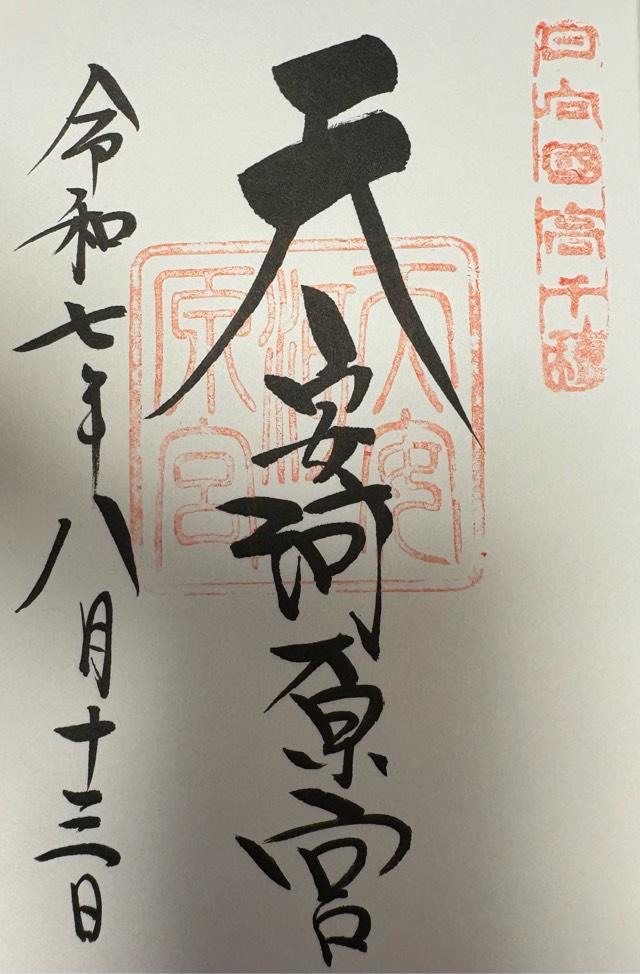 日向国高千穂
天安河原宮
天安河原宮
令和七年八月十三日